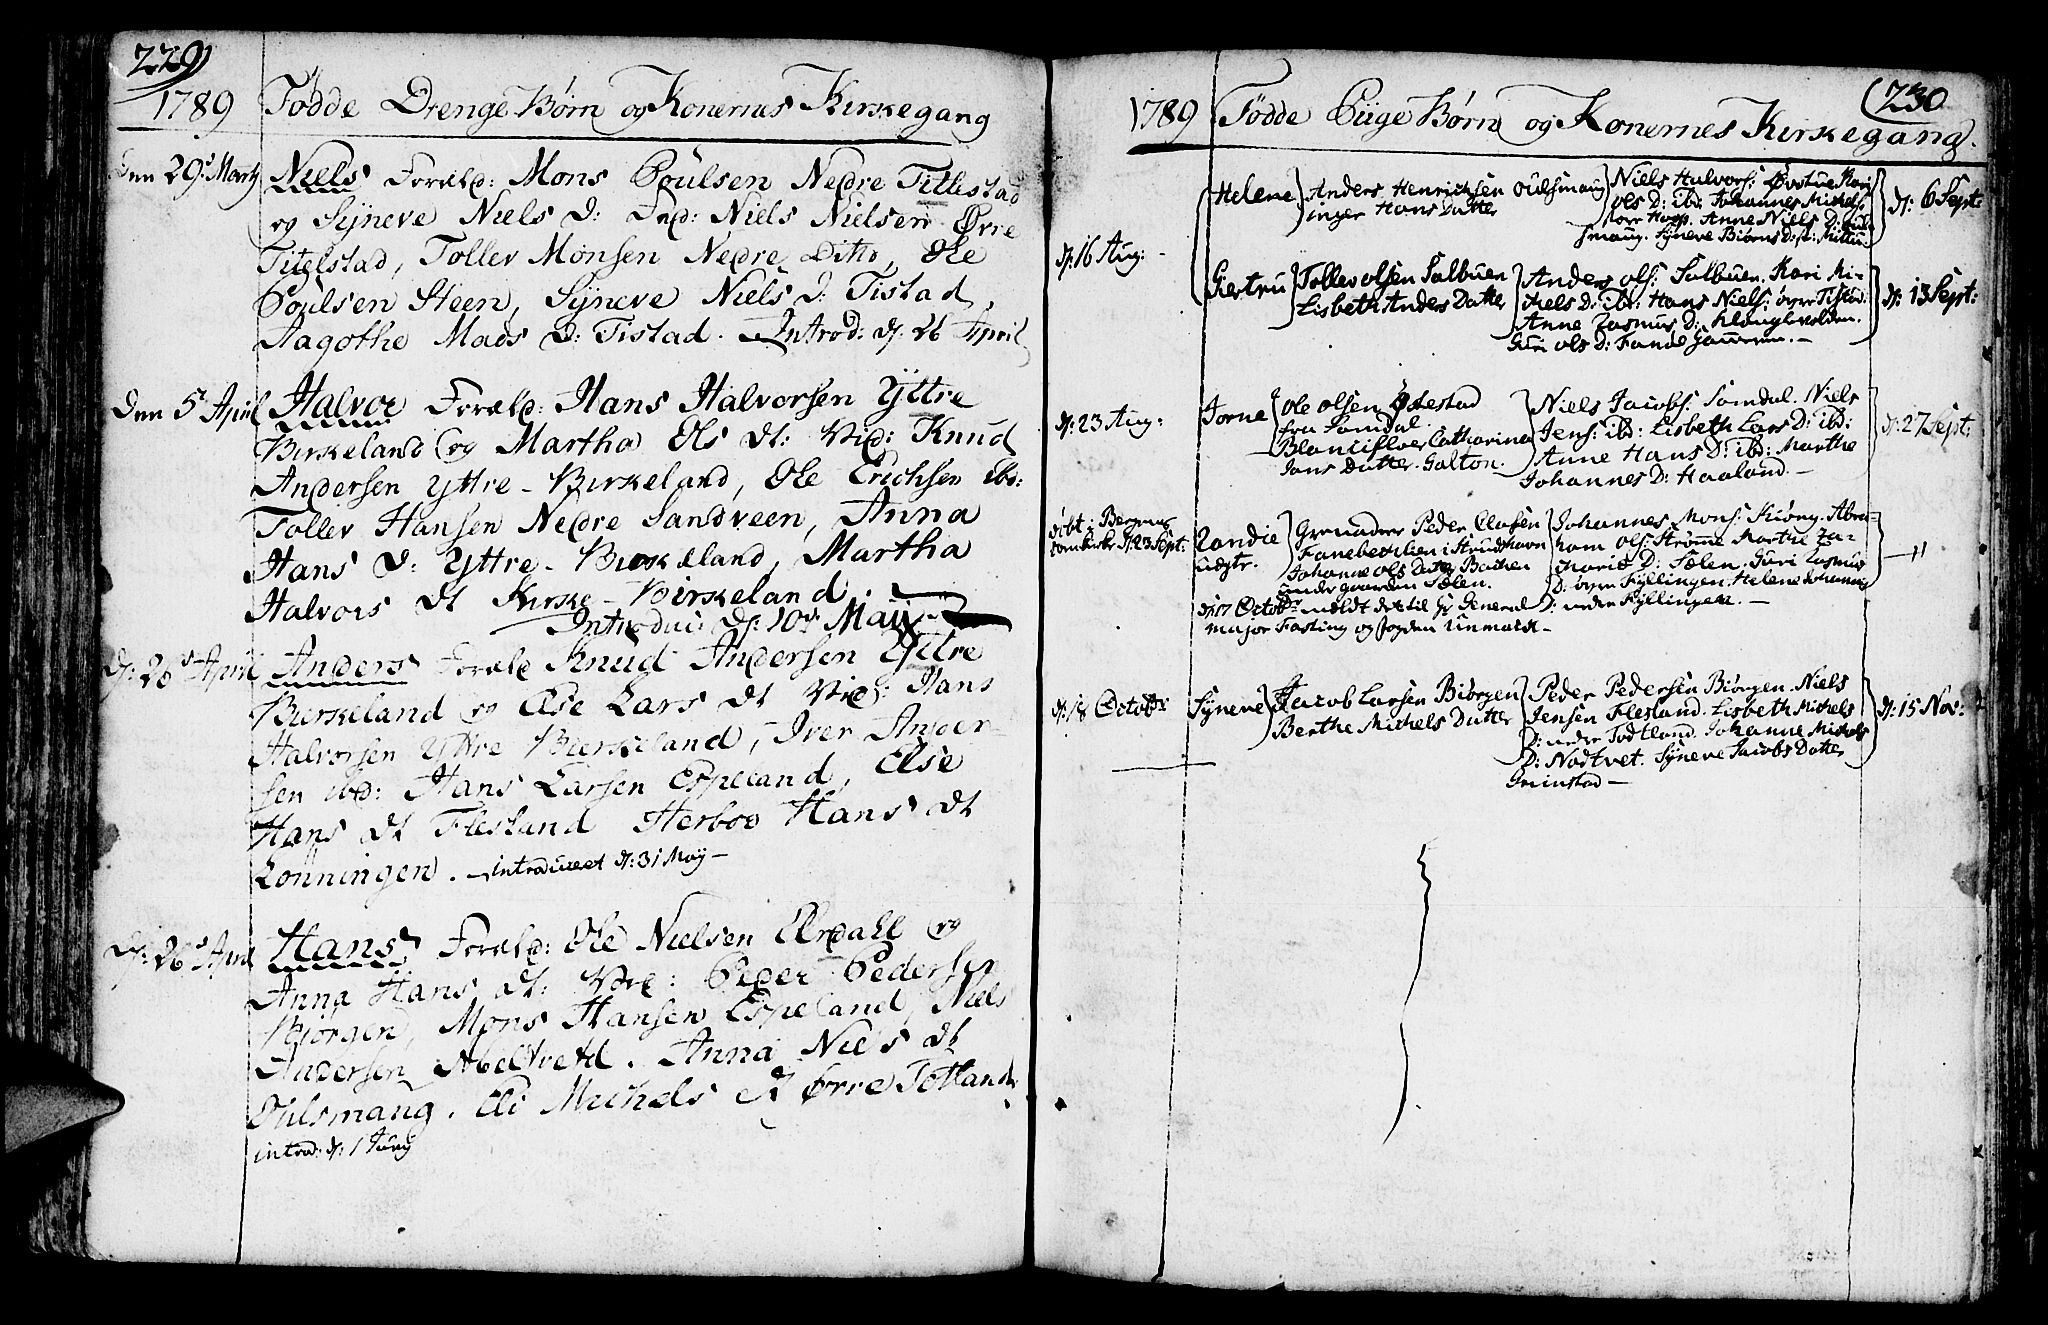 229
1789 Fødde Drenge Børn og Konernes Kirkegang
Den 29d Martj Niels Foræld: Mons Poulsen Nedre Titlestad
og Syneve Niels D: Fad: Niels Nielsen Øvre
Titelstad, Tollev Monsen Nedre Ditto, Ole
Poulsen Steen, Syneve Niels D: Tistad,
Aagothe Mads D: Tistad. Introd: d: 26 April
Den 5t April Halvor Foræld: Hans Halvorsen Yttre
Birkeland og Martha Ols dt: Vid: Knud
Andersen Yttre-Birkeland, Ole Erichsen ibd:
Tollev Hansen Nedre Sandveen, Anna
Hans D: Yttre-Birkeland, Martha
Halvors dt Kirke-Birkeland.
Introduc: d: 10de Maij
d: 26d April Anders Foræld Knud Andersen Yttre
Birkeland og Else Lars dt Vid: Hans
Halvorsen Yttre Birkeland, Iver Ander-
sen ibd: Hans Larsen Espeland, Else
Hans dt Flesland Herboe Hans dt
Lønningen. introduceet d: 31 Maij
d: 26d April Hans Foræld: Ole Nielsen Elvdall og
Anna Hans dt: Vid: Peder Pedersen
Bjørgen, Mons Hansen Espeland, Niels
Andersen Abeltvetd. Anna Niels dt
Oulsmaug. Eli Michels dt Øvre Totland
introd: d: 1 Juny
230
1789 Fødde Piige Børn og Konernes Kirkegang.
d: 16 Aug:
Helene Anders Henrichsen Oulsmaug
inger Hans Datter
Niels Halvors: Øvstue Kari
ols D: ibd: Johannes Michels:
Hope. Anne Niels D: ouls-
maug. Syneve Biørns D: Mittun.
d: 6 Sept:
Giertru Tollev olsen Salbuen
Lisbeth Anders Datter
Anders ols: Salbuen. Kari Mi-
chels D: ibd: Hans Niels: øvre Tistd:
Anne Rasmus D: Klonglevolden.
Guri ols D: Fanoe
d: 13 Sept:
d: 23 Aug: Jorne Ole Olsen
fra Somdal
Blanciflor Catharina
Jans Datter. Galton.
Niels Jacobs: Somdal. Niels
Jens: ibd: Lisbeth Lars D: ibd:
Anne Hans D: ibd: Marthe
Johannes D: Haaland.
d: 27 Sept:
døbt i Bergens
domkirke d: 23 Sept:
Randie
uægte.
Grenadeer Peder Olufsen
Johanne ols Datter
under gaarden Sælen.
Johannes Mons: Kiøng. Abra-
ham ols: Strømme Marthe Za-
charis D: Sælen. Guri Rasmus
D: øvre Fyllingen. Helene Johannis
D: nedre Fyllingen.
d: 17 Octobr meldt det til Hr General
major Fasting og fogden Unmack
d: 18 Octobr: Syneve Jacob Larsen Biørgen
Berthe Michels Datter
Peder Pedersen Biørgen. Niels
Jensen Flesland. Lisbeth Michels
D: nedre Todtland. Johanne Michels
D: Nodtvet. Syneve Jacobs Datter
Grimstad
d: 15 Nov: